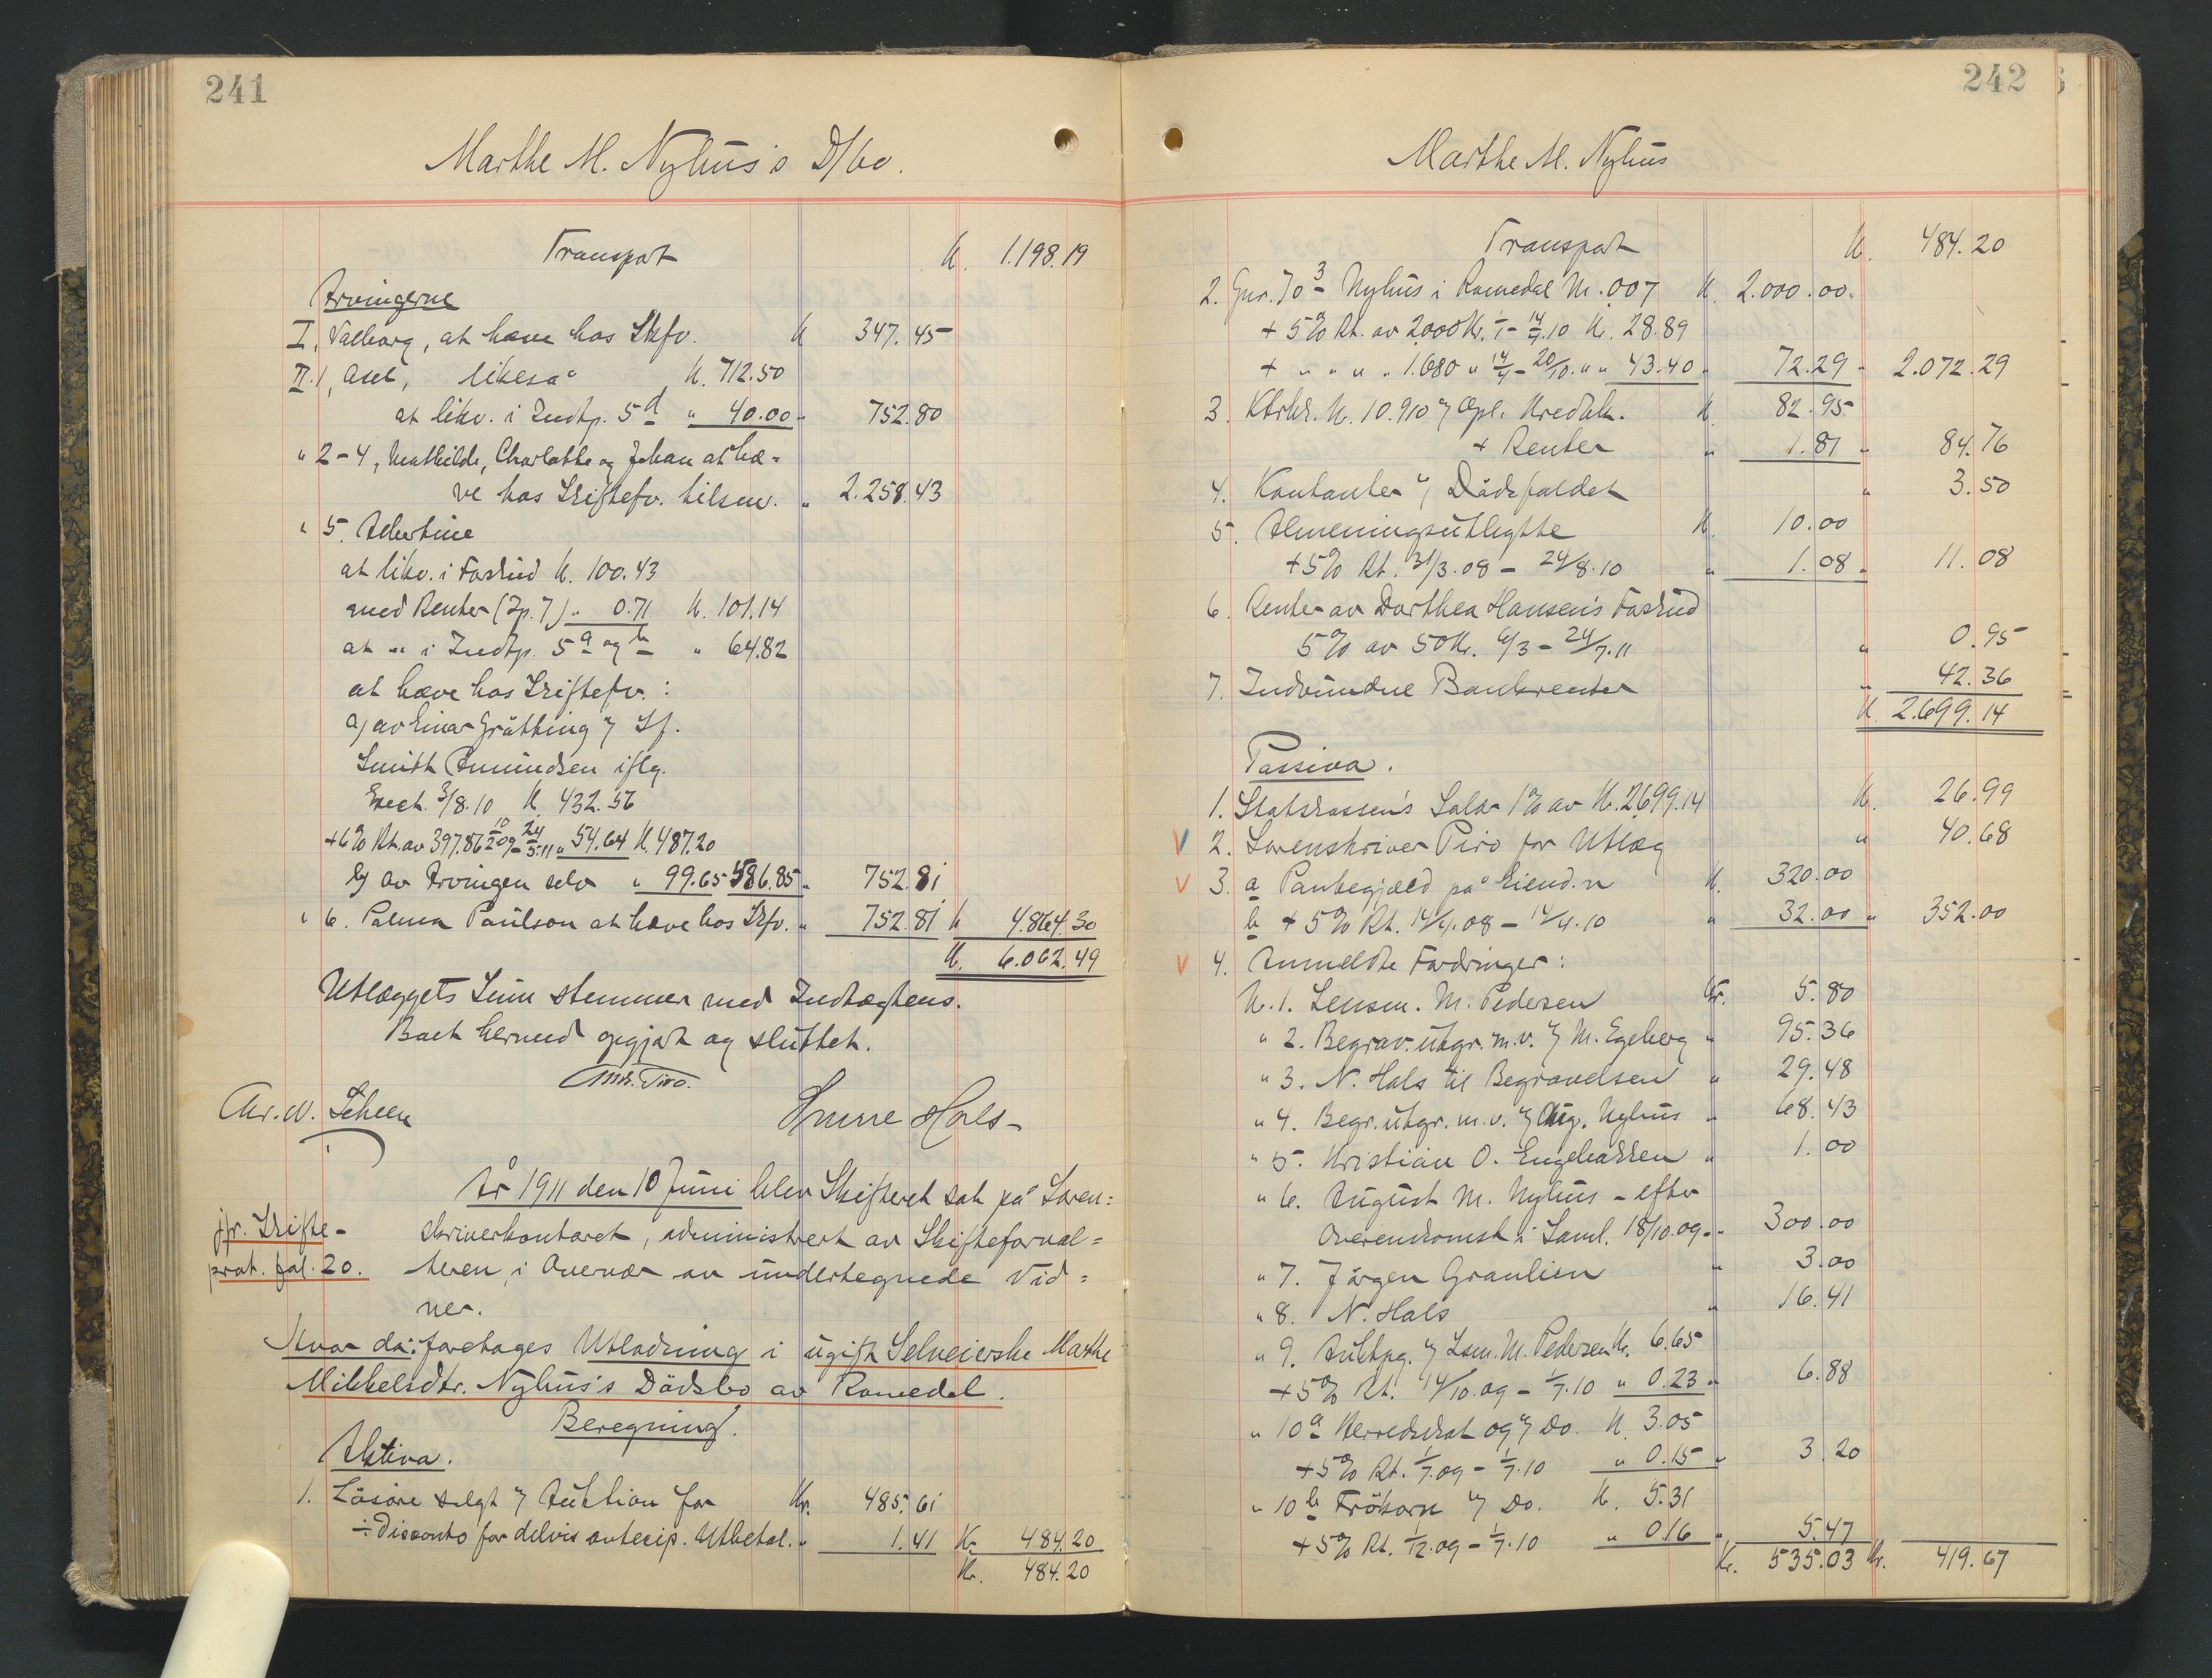 241
Marthe M. Nyhus's D/bo.
Transport K. 1.198.19
Arvingerne
I, Valborg, at hæve hos Skfv. K 347.45
II.1, Axel, likesaa K. 712.50
at likv. i Indtp. 5 d " 40.00 " 752.80
" 2-4, Mathilde, Charlotte og Johan at hæ=
ve hos Skiftefv. tilsm. " 2.258.43
" 5. Albertine
at likv. i Foskud K. 100.43
med Renter (Ip. 7) " 0.71 K. 101.14
at -"- i Indtp. 5 a og b " 64.82
at hæve hos Skiftefv.:
a) av Einar Grøtting v/ Sf.
Smith Amundsen iflg.
Exect. 3/8.10 K. 432.56
+ 6% Rt. av 397.86 10/2 09 - 24/5.11 " 54.64 K. 487.20
b) av Arvingen selv " 99.65 586.85 " 752.81
" 6. Palma Paulson at hæve hos Skfv. " 752.81 K 4.864.30
K. 6.062.49
Utlæggets Sum stemmer med Indtægtens.
Boet hermed opgjort og sluttet.
Mdr. Piro.
Chr. W. Scheen Snorre Hals
År 1911 den 10 Juni blev Skifteret sat på Soren=
jfr. Skifte- skriverkontoret, administrert av Skifteforval=
prot. fol. 20. teren, i Overvær av undertegnede Vid=
ner.
Hvor da: foretages Utlodning i ugift Selveierske Marthe
Mikkelsdtr. Nyhus's Dødsbo av Romedal.
Beregning.
Aktiva.
1. Løsøre solgt v/ Auktion for Kr. 485.61
÷ Disconto for delvis antecip. Utbetal. " 1.41 Kr. 484.20
Kr. 484.20
242
Marthe M. Nyhus
Transport K. 484.20
2. Gnr. 70 3 Nyhus i Romedal M. 007 K. 2.000.00.
+ 5% Rt. av 2000 Kr. 1/1 - 14/4.10 K. 28.89
+ " " " " 1.680 " 14/4 - 20/10. " " 43.40 " 72.29 " 2.072.29
3. Ktrbk. N. 10.910 v/ Opl. Kredbk. K. 82.95
+ Renter " 1.81 " 84.76
4. Kontanter v/ Dødsfaldet " 3.50
5. Almeningsutbytte K. 10.00
+ 5% Rt. 31/3.08 - 24/8.10 " 1.08 " 11.08
6. Renter av Dorthea Hansen's Foskud
5% av 50 Kr. 6/3 - 24/7.11 " 0.95
7. Indvundne Bankrenter " 42.36
K. 2.699.14
Passiva.
1. Statskassen's Salær 1% av K. 2.699.14 K. 26.99
2. Sorenskriver Piro for Utlæg " 40.68
3. a Pantegjæld på Eiend.n K. 320.00
b + 5% Rt. 14/4.08 - 14/4.10 " 32.00 " 352.00
4. Anmeldte Fordringer:
N. 1. Lensm. M. Pedersen Kr. 5.80
" 2. Begrav. utgr. m.v. v/ M. Egeberg " 95.36
" 3. N. Hals til Begravelsen " 29.48
" 4. Begr. utgr. m.v. v/ Aug. Nyhus " 68.43
" 5. Kristian O. Engebakken " 1.00
" 6. August M. Nyhus - efter
Overenskomst i Saml. 18/10.09 - " 300.00
" 7. Jørgen Granlien " 3.00
" 8. N. Hals " 16.41
" 9. Auktpg. v/ Lsm. M. Pedersen K. 6.65
+ 5% Rt. 14/10.09 - 1/7.10 " 0.23 " 6.88
" 10 a Herredskat og v/ Do. K. 3.05
+ 5% Rt. 1/7.09 - 1/7.10 " 0.15 " 3.20
" 10 b Frøkorn v/ Do. K. 5.31
+ 5% Rt. 1/12.09 - 1/7.10 " 0.16 " 5.47
Kr. 535.03 Kr. 419.67